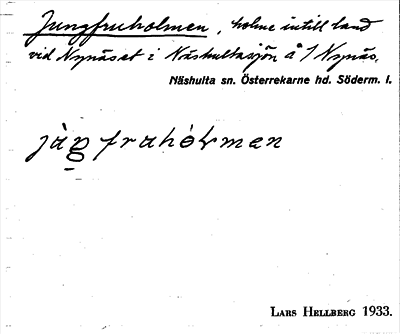 Jungfruholmen, holme intill land
vid Nynäset i Näshultasjön å 1 Nynäs.
Näshulta sn. Österrekarne hd. Söderm. l.
LARS HELLBERG 1933.